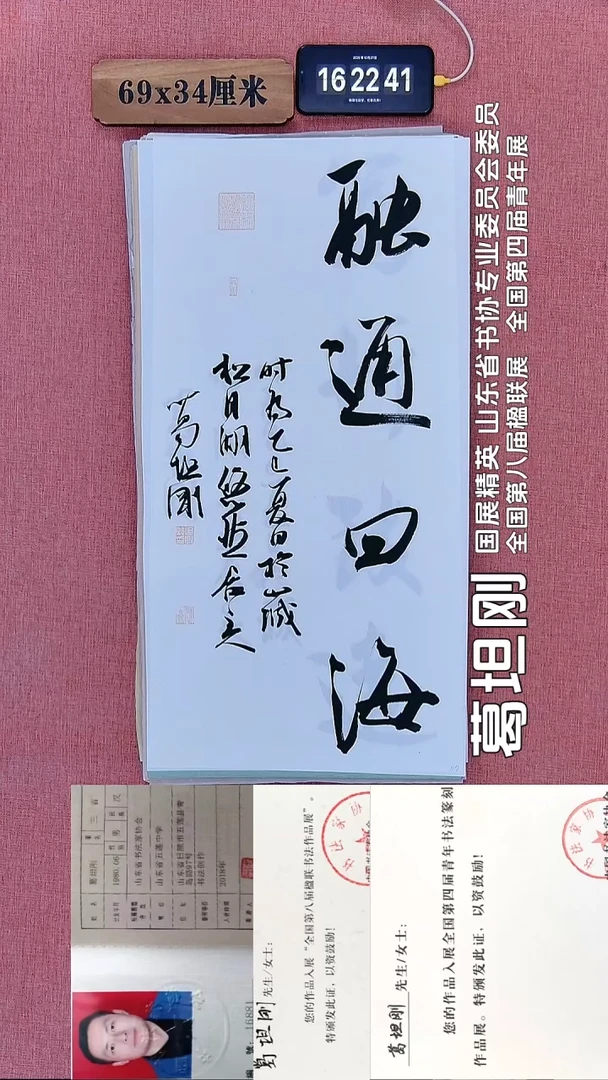 69x34厘米
16 22 41
融通四海
时为乙巳夏日於
松月湖
葛坦刚
葛坦刚
国展精英 山东省书协专业委员会委员
全国第八届楹联展 全国第四届青年展
姓名 葛坦刚
山东省书法家协会
山东省五莲中学
书法创作
2018年
16881
葛坦刚 先生/女士:
您的作品入展“全国第八届楹联书法作品展”。
特颁发此证，以资鼓励!
葛坦刚 先生/女士:
您的作品入展全国第四届青年书法篆刻
作品展。特颁发此证，以资鼓励!